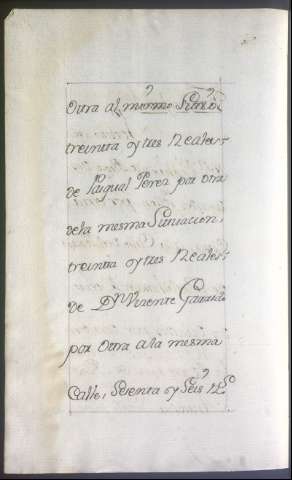 Otra al mismo
treinta y tres Reales
de Pasqual Perez por otra
de la misma Situacion,
treinta y tres Reales
de Dn Vicente
por otra a la misma
Calle, Setenta y Seis Rs